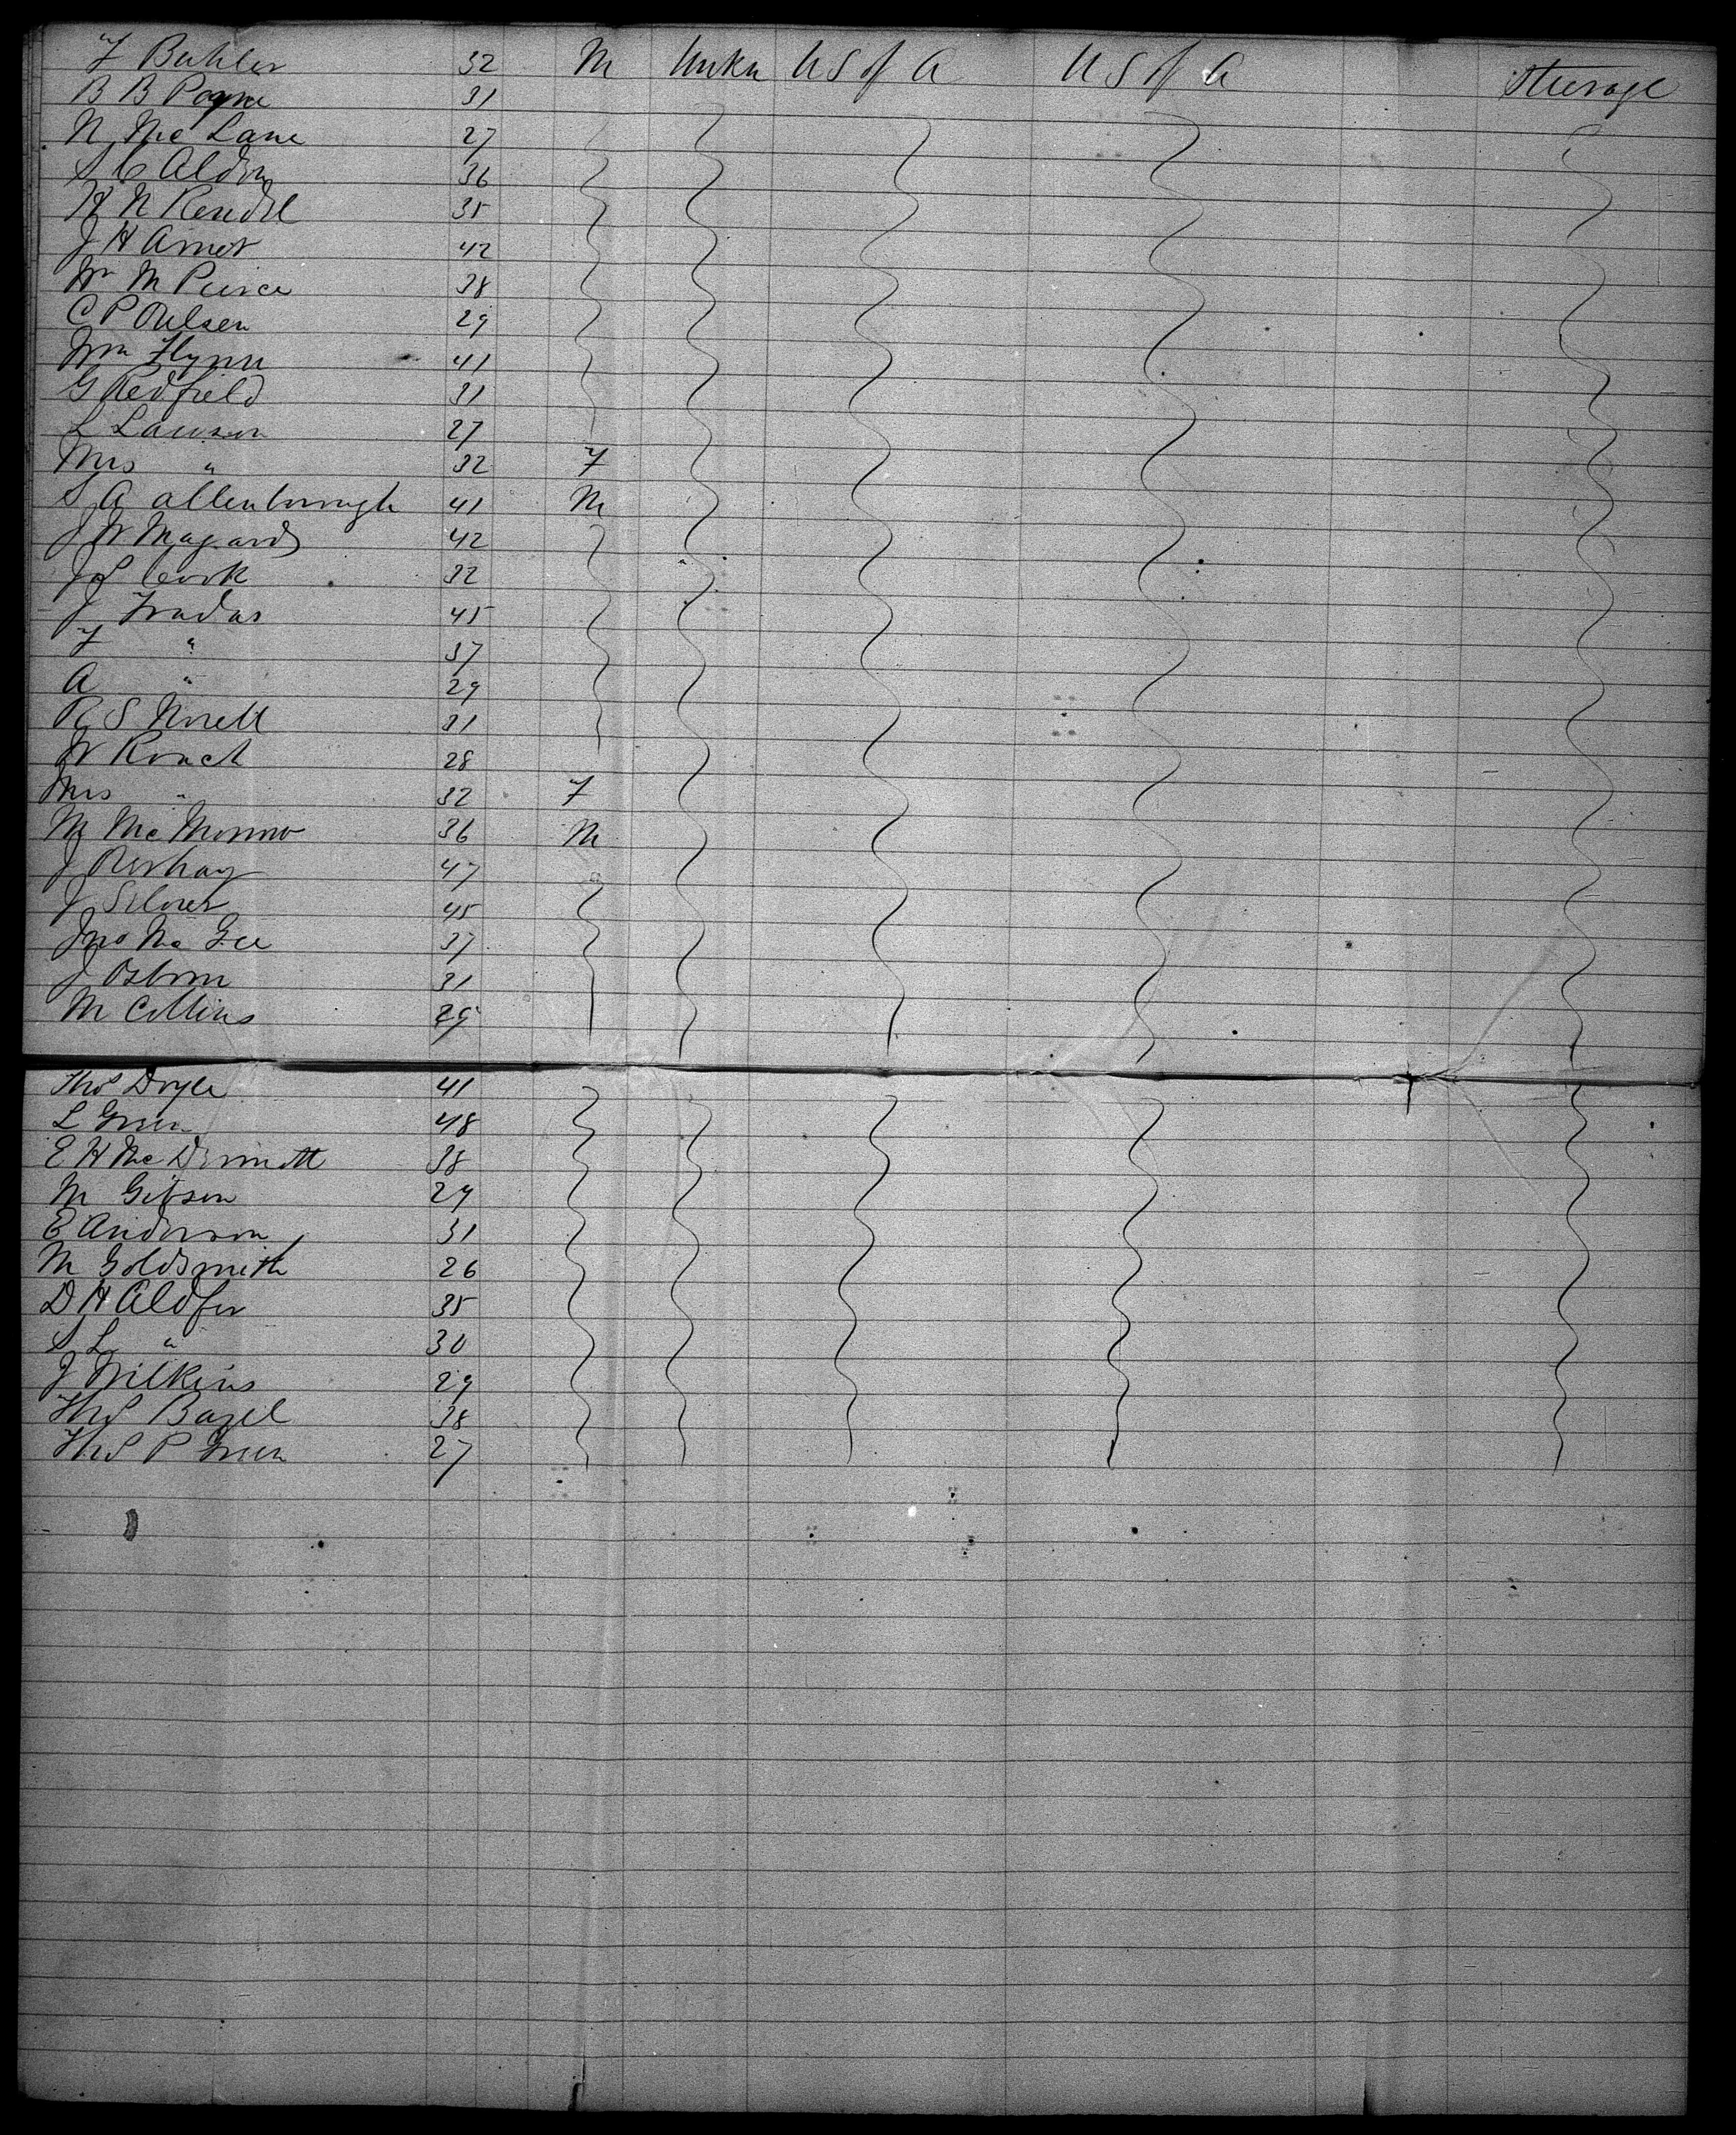 F Buhler 32 M Unkn U S of A U S of A Steerage
B B Payne 31
N Mc Lane 27
S C Aldon 36
H N Kendel 35
J H Amer 42
Wm M Peirce 38
C P Oulsen 29
Wm Flynn 41
G Redfield 31
L Lawson 27
Mrs " 32 F
S A Allenborough 41 M
J W Magard 42
J S Cook 32
J Fradas 45
F " 37
A " 29
R S Norell 31
W Roach 28
Mrs " 32 F
M Mc Morrow 36 M
J 47
J Silver 45
Jno Mc Gee 37
J Osborn 31
M Collins 29
Thos Doyle 41
L Green 48
E H Mc Dermott 38
M Gibson 29
E Anderson 31
M Goldsmith 26
D H Aldfer 35
S L " 30
J Wilkins 29
Thos Bazel 38
Thos P Green 27